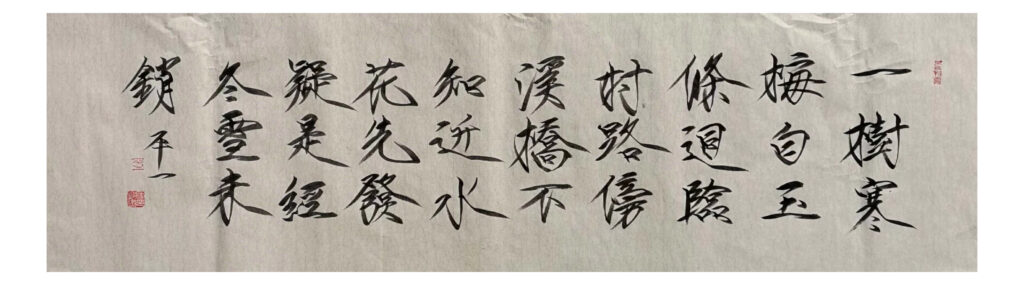 一樹寒
梅白玉
條迴臨
村路傍
溪橋不
知近水
花先發
疑是經
冬雪未
銷
平一